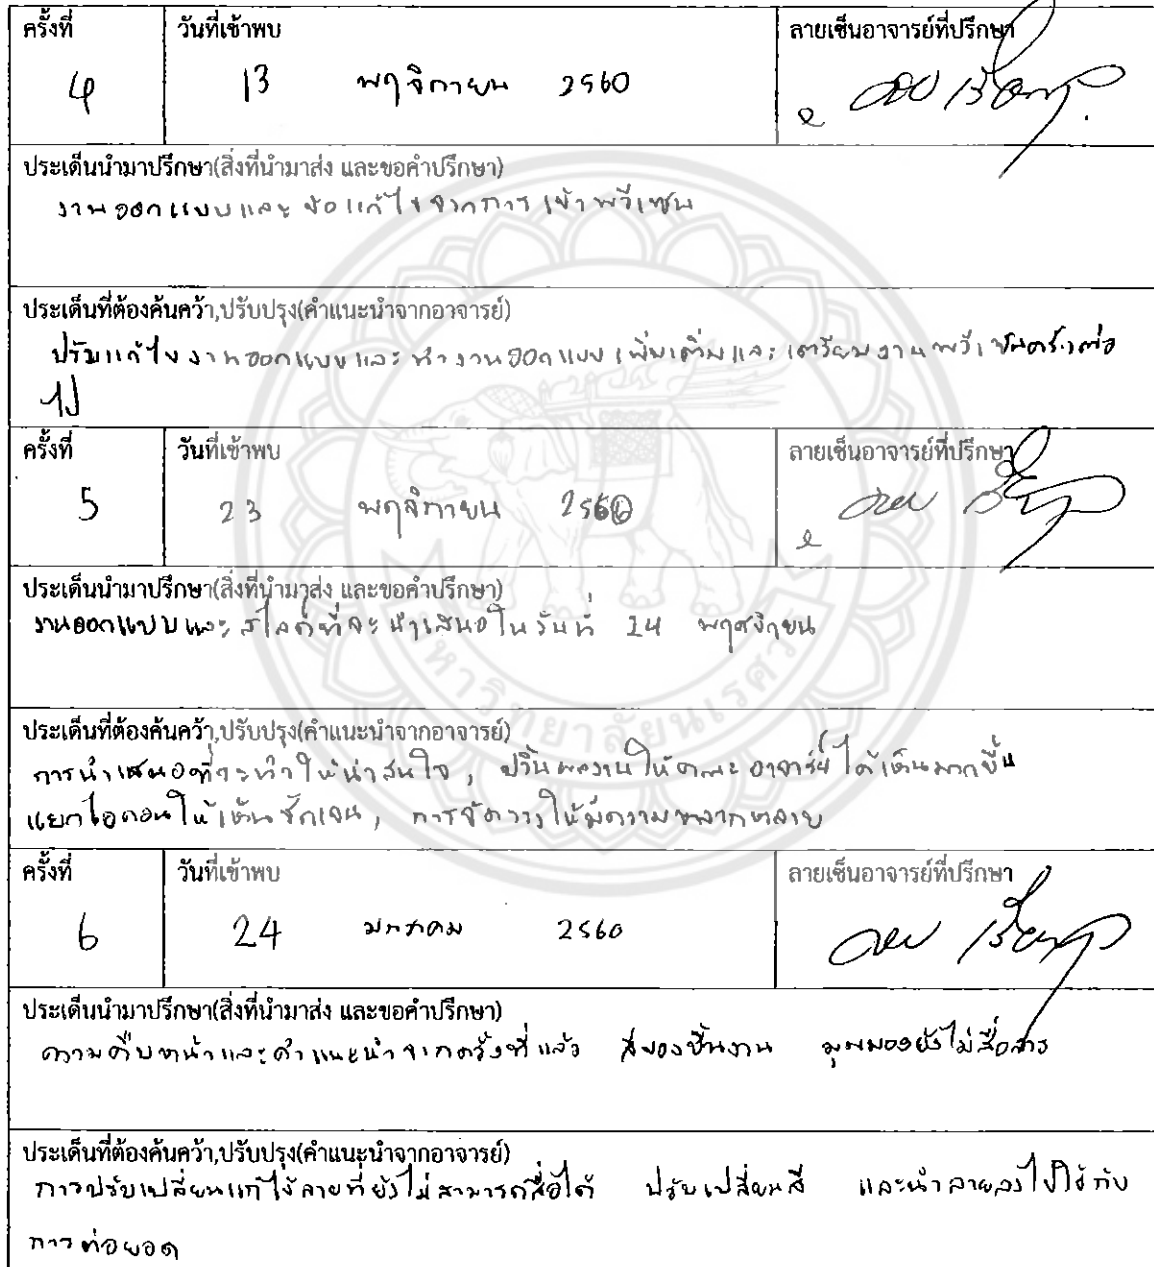 ครั้งที่ วันที่เข้าพบ ลายเซ็นอาจารย์ที่ปรึกษา
4 13 พฤศจิกายน 2560
ประเด็นนำมาปรึกษา(สิ่งที่นำมาส่ง และขอคำปรึกษา)
งานออกแบบและข้อแก้ไขจากการเข้าพรีเซน
ประเด็นที่ต้องค้นคว้า,ปรับปรุง(คำแนะนำจากอาจารย์)
ปรับแก้ไขงานออกแบบและนำงานออกแบบเพิ่มเติมและเตรียมงานพรีเซนครั้งต่อ
ไป
ครั้งที่ วันที่เข้าพบ ลายเซ็นอาจารย์ที่ปรึกษา
5 23 พฤศจิกายน 2560
ประเด็นนำมาปรึกษา(สิ่งที่นำมาส่ง และขอคำปรึกษา)
งานออกแบบและสไลด์ที่จะนำเสนอในวันที่ 24 พฤศจิกายน
มหาวิทยาลัยนเรศวร
ประเด็นที่ต้องค้นคว้า,ปรับปรุง(คำแนะนำจากอาจารย์)
การนำเสนอที่จะทำให้น่าสนใจ, ปริ้นผลงานให้คณะอาจารย์ได้เห็นมากขึ้น
แยกไอคอนให้เห็นชัดเจน, การจัดวางให้มีความหลากหลาย
ครั้งที่ วันที่เข้าพบ ลายเซ็นอาจารย์ที่ปรึกษา
6 24 มกราคม 2560
ประเด็นนำมาปรึกษา(สิ่งที่นำมาส่ง และขอคำปรึกษา)
ความคืบหน้าและคำแนะนำจากครั้งที่แล้ว สีของชิ้นงาน มุมมองยังไม่สื่อสาร
ประเด็นที่ต้องค้นคว้า,ปรับปรุง(คำแนะนำจากอาจารย์)
การปรับเปลี่ยนแก้ไขลายที่ยังไม่สามารถสื่อได้ ปรับเปลี่ยนสี และนำลายลงไปใช้กับ
การต่อยอด